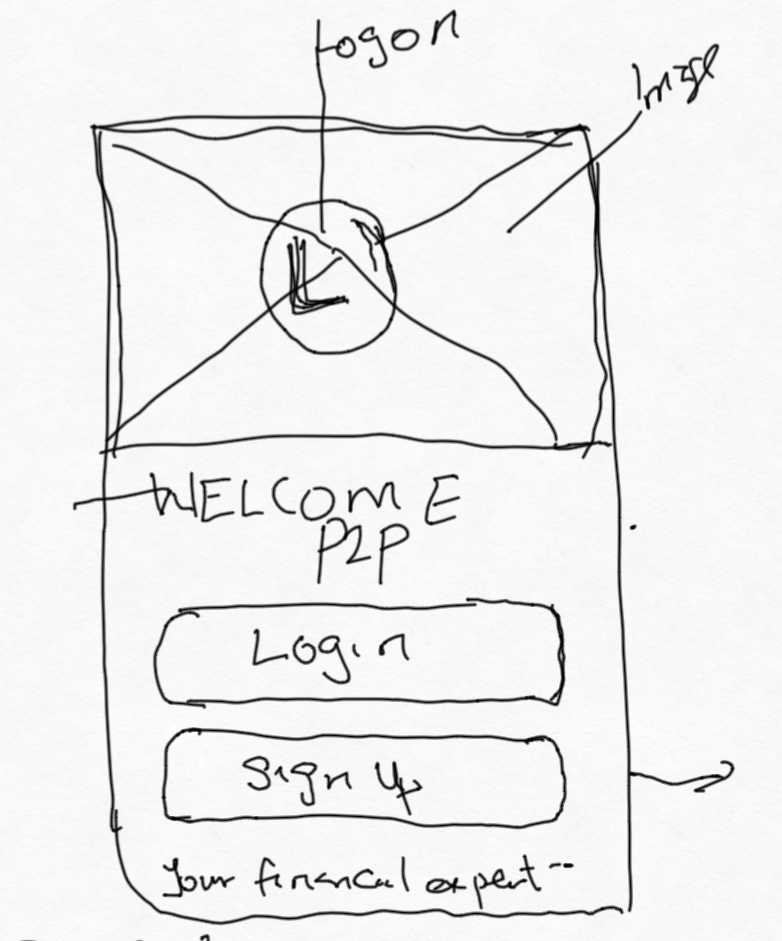 Logon
Image
L
WELCOME
P2P
Login
Sign up
Your financial expert --